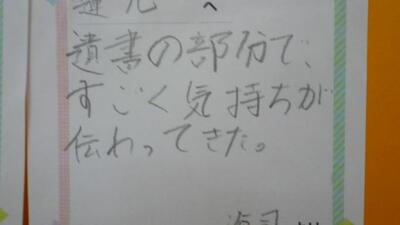 へ
遺書の部分で、
すごく気持ちが
伝わってきた。